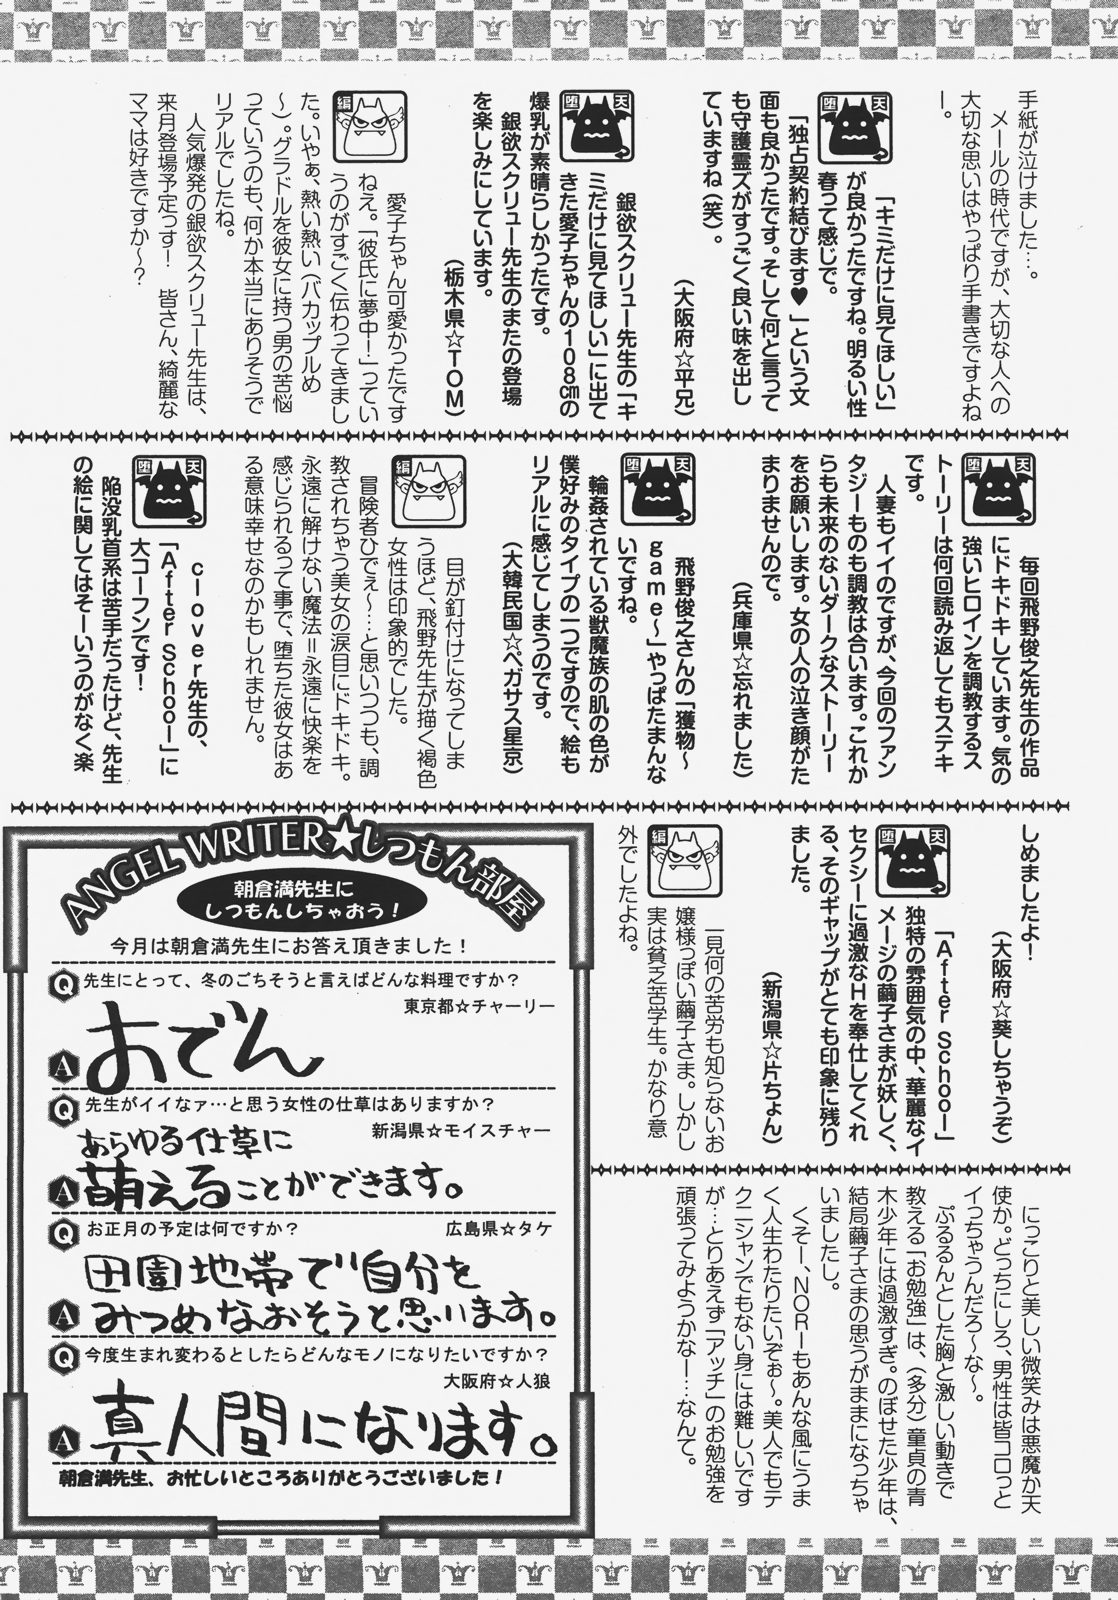 手紙が泣けました…。
メールの時代ですが、大切な人への
大切な思いはやっぱり手書きですよね
ー。
堕天
「キミだけに見てほしい」
が良かったですね。明るい性
春って感じで。
「独占契約結びます♥」という文
面も良かったです。そして何と言って
も守護霊ズがすっごく良い味を出し
ていますね(笑)。
(大阪府☆平兄)
堕天
銀欲スクリュー先生の「キ
ミだけに見てほしい」に出て
きた愛子ちゃんの108㎝の
爆乳が素晴らしかったです。
銀欲スクリュー先生のまたの登場
を楽しみにしています。
(栃木県☆TOM)
編
愛子ちゃん可愛かったです
ねえ。「彼氏に夢中!」ってい
うのがすごく伝わってきまし
た。いやぁ、熱い熱い(バカップルめ
~)。グラドルを彼女に持つ男の苦悩
っていうのも、何か本当にありそうで
リアルでしたね。
人気爆発の銀欲スクリュー先生は、
来月登場予定っす! 皆さん、綺麗な
ママは好きですか~?
堕天
毎回飛野俊之先生の作品
にドキドキしています。気の
強いヒロインを調教するス
トーリーは何回読み返してもステキ
です。
人妻もイイのですが、今回のファン
タジーものも調教は合います。これか
らも未来のないダークなストーリー
をお願いします。女の人の泣き顔がた
まりませんので。
(兵庫県☆忘れました)
堕天
飛野俊之さんの「獲物~
game~」やっぱたまんな
いですね。
輪姦されている獣魔族の肌の色が
僕好みのタイプの一つですので、絵も
リアルに感じてしまうのです。
(大韓民国☆ペガサス星京)
編
目が釘付けになってしま
うほど、飛野先生が描く褐色
女性は印象的でした。
冒険者ひでぇ~…と思いつつも、調
教されちゃう美女の涙目にドキドキ。
永遠に解けない魔法=永遠に快楽を
感じられるって事で、堕ちた彼女はあ
る意味幸せなのかもしれません。
堕天
clover先生の、
「After School」に
大コーフンです!
陥没乳首系は苦手だったけど、先生
の絵に関してはそーいうのがなく楽
しめましたよ!
(大阪府☆葵しちゃうぞ)
堕天
「After School」
独特の雰囲気の中、華麗なイ
メージの繭子さまが妖しく、
セクシーに過激なHを奉仕してくれ
る、そのギャップがとても印象に残り
ました。
(新潟県☆片ちょん)
編
一見何の苦労も知らないお
嬢様っぽい繭子さま。しかし
実は貧乏苦学生。かなり意
外でしたよね。
にっこりと美しい微笑みは悪魔か天
使か。どっちにしろ、男性は皆コロっと
イっちゃうんだろ~な~。
ぷるるんとした胸と激しい動きで
教える「お勉強」は、(多分)童貞の青
木少年には過激すぎ。のぼせた少年は、
結局繭子さまの思うがままになっちゃ
いましたし。
くそー、NORIもあんな風にうま
く人生わたりたいぞぉ~。美人でもテ
クニシャンでもない身には難しいです
が…とりあえず「アッチ」のお勉強を
頑張ってみようかなー…なんて。
ANGEL WRITER★しつもん部屋
朝倉満先生に
しつもんしちゃおう!
今月は朝倉満先生にお答え頂きました!
Q 先生にとって、冬のごちそうと言えばどんな料理ですか?
東京都☆チャーリー
A おでん
Q 先生がイイなァ…と思う女性の仕草はありますか?
新潟県☆モイスチャー
あらゆる仕草に
A 萌えることができます。
Q お正月の予定は何ですか? 広島県☆タケ
田園地帯で自分を
A みつめなおそうと思います。
Q 今度生まれ変わるとしたらどんなモノになりたいですか?
大阪府☆人狼
A 真人間になります。
朝倉満先生、お忙しいところありがとうございました!